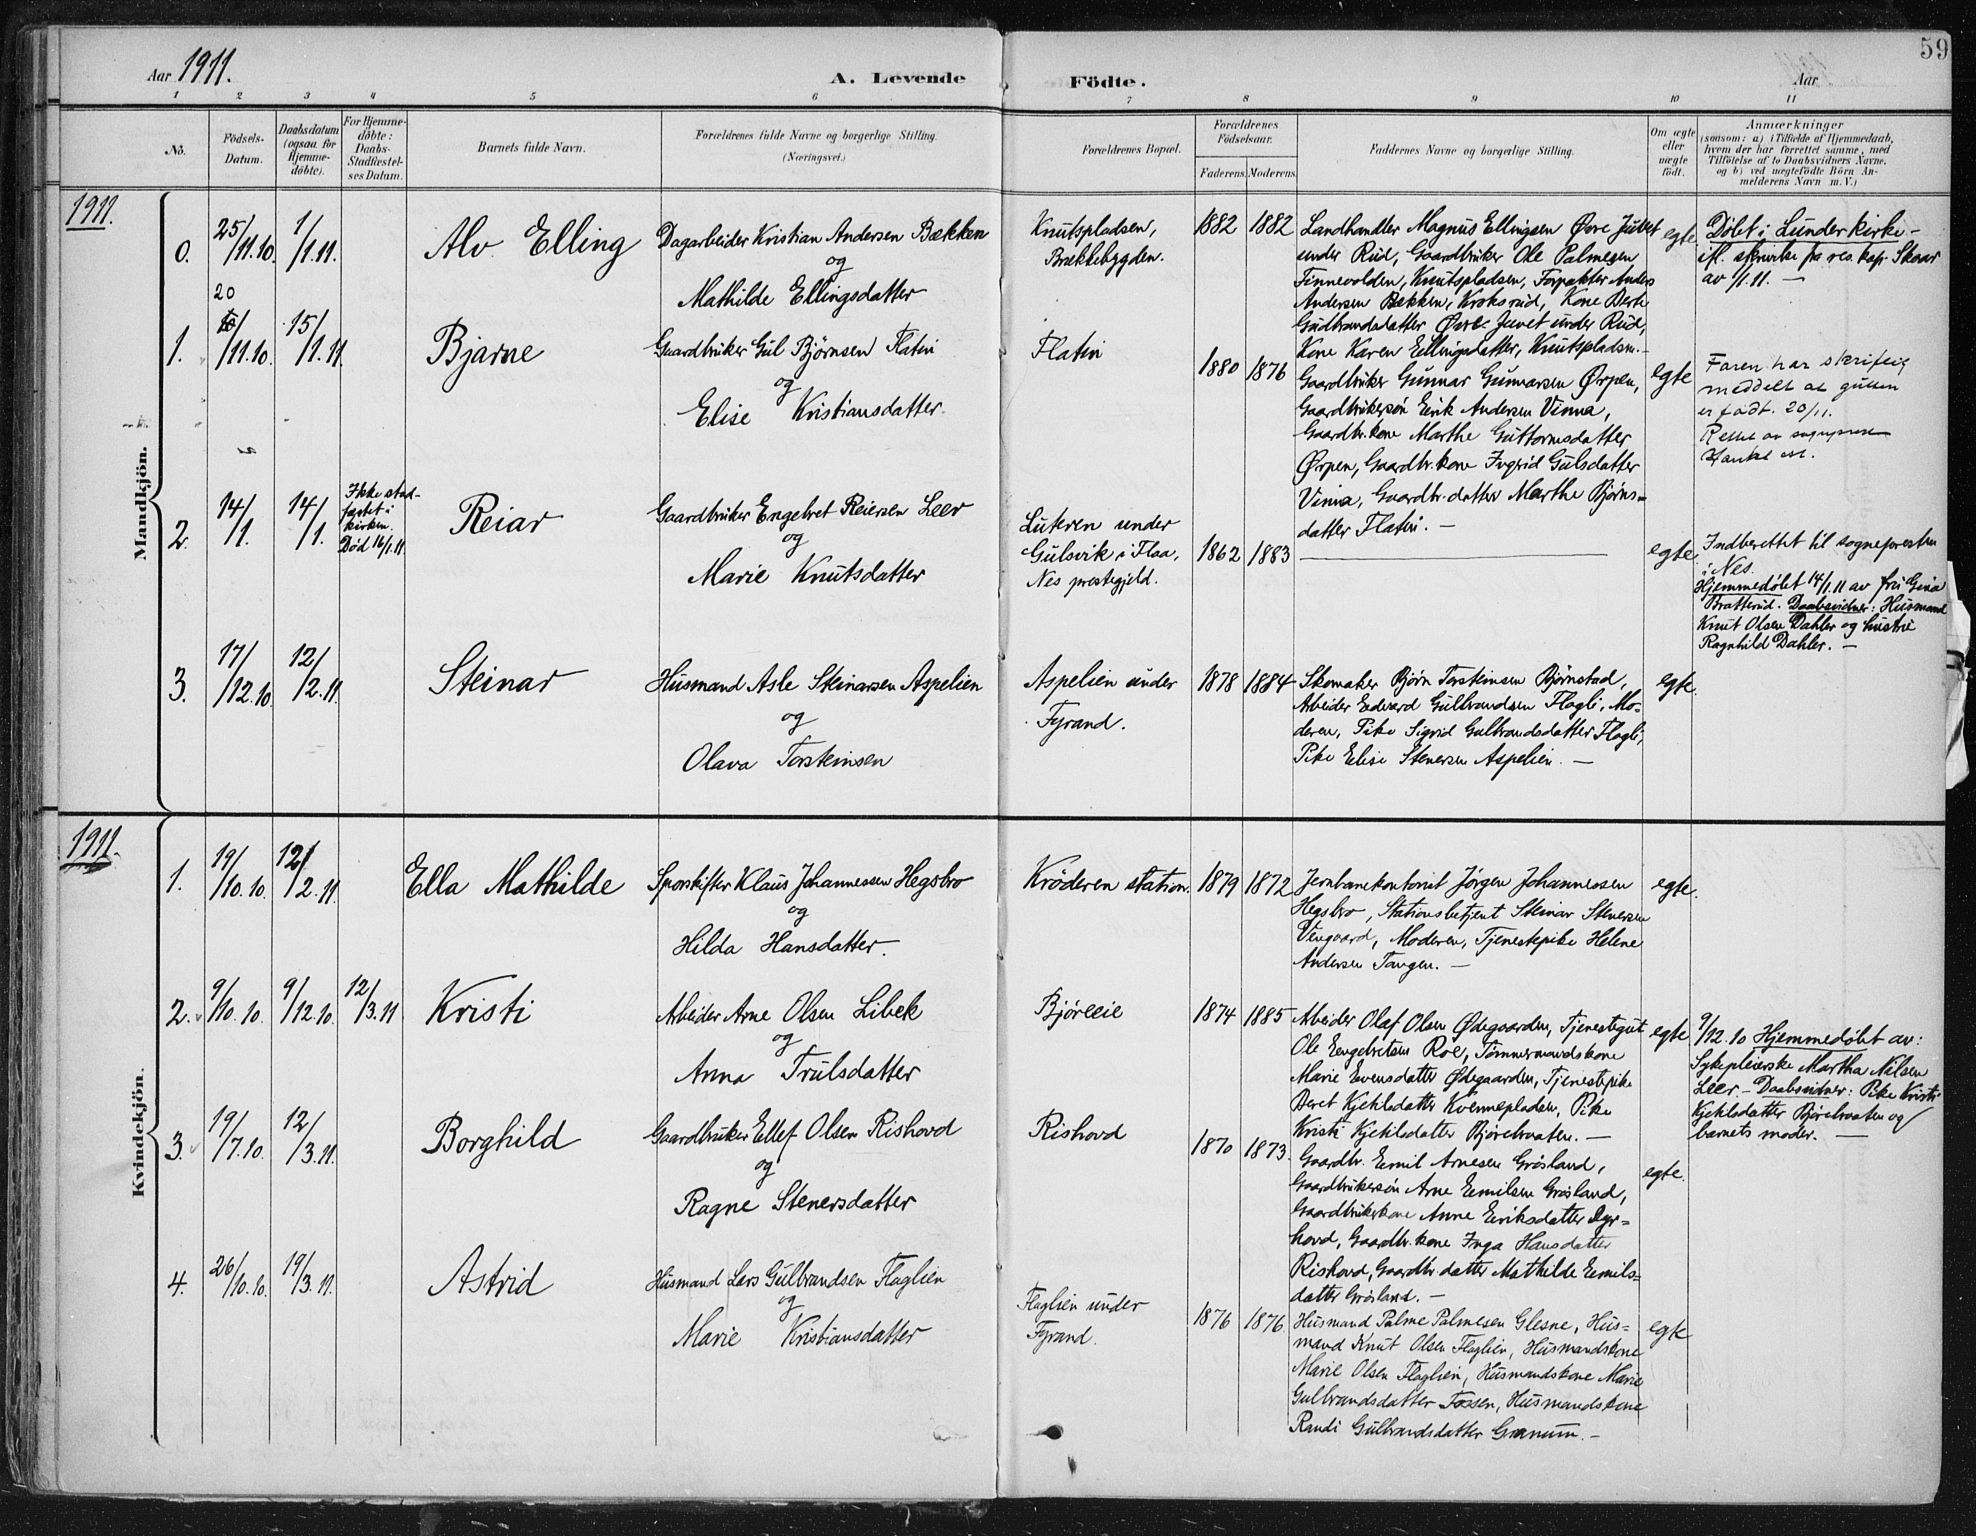 59
Aar 1911. A. Levende Fødte. Aar
1 2 3 4 5 6 7 8 9 10 11
No.
Fødsels-
Datum.
Daabsdatum
(ogsaa for
Hjemme-
døbte).
For Hjemme-
døbte:
Daabs-
Stadfæstel-
ses Datum.
Barnets fulde Navn.
Forældrenes fulde Navne og borgerlige Stilling.
(Næringsvei.)
Forældrenes Bopæl.
Forældrenes
Fødselsaar.
Faderens. Moderens.
Faddernes Navne og borgerlige Stilling.
Om ægte
eller
uægte
født.
Anmærkninger
(saasom: a) i Tilfælde af Hjemmedaab,
hvem der har forrettet samme, med
Tilføielse af to Daabsvidners Navne,
og b) ved uægtefødte Børn An-
melderens Navn m. V.)
1911.
Mandkjøn.
0.
25/11.10.
1/1.11.
Alv Elling
Dagarbeider Kristian Andersen Bækken
og
Mathilde Ellingsdatter
Knutspladsen,
Brækkebygden.
1882 1882
Landhandler Magnus Ellingsen Øvre Juvet
under Rud, Gaardbruker Ole Palmesen
Finnevolden, Knutspladsen, Forpakter Anders
Andersen Bækken, Kroksrud, Kone Berte
Gudbrandsdatter Øvre Juvet under Rud,
Kone Karen Ellingsdatter, Knutspladsen.-
egte.
Døbt i Lunder kirke -
ifl. skrivelse fra res. kap. Skaar
av 1/1.11. -
1.
20
/11.10.
15/1.11.
Bjarne
Gaardbruker Gul Bjørnsen Flatin
og
Elise Kristiansdatter.
Flatin
1880 1876
Gaardbruker Gunnar Gunnarsen Ørpen,
Gaardbrukersøn Eirik Andersen Vinna,
Gaardbr.kone Marthe Guttormsdatter
Ørpen, Gaardbr.kone Ingrid Gulsdatter
Vinna, Gaardbr.datter Marthe Bjørns-
datter Flatin. -
egte
Faren har skriftlig
meddelt at gutten
er født. 20/11.
Rettet av sogneprest
2.
14/1.
14/1.
Ikke stad-
fæstet i
kirken.
Død 16/1.11.
Reiar
Gaardbruker Engebret Reiersen Leer
og
Marie Knutsdatter
Luteren under
Gulsvik i Flaa,
Nes prestegjeld.
1862 1883
egte
Indberettet til sognepresten
i Nes.
Hjemmedøbt 14/1.11 av fru Gina
Bratterud. Daabsvidner: Husmand
Knut Olsen Dahler og hustru
Ragnhild Dahler. -
3.
17/12.10.
12/2.11.
Steinar
Husmand Asle Steinarsen Aspelien
og
Olava Torsteinsen
Aspelien under
Fyrand.
1878 1884
Skomaker Bjørn Torsteinsen Bjørnstad,
Arbeider Edvard Gulbrandsen Flagli, Mo-
deren, Pike Sigrid Gulbrandsdatter Flagli,
Pike Elise Stenersen Aspelien. -
egte.
1911.
Kvindekjøn.
1.
19/10.10.
12/2.11.
Ella Mathilde
Sporskifter Klaus Johannessen Hegsbro
og
Hilda Hansdatter.
Krøderen station.
1879 1872
Jernbanekontorist Jørgen Johannessen
Hegsbro, Stationsbetjent Steinar Stenersen
Vengaard, Moderen, Tjenestepike Helene
Andersen Tangen. -
egte.
2.
9/10.10.
9/12.10.
12/3.11
Kristi
Arbeider Arne Olsen Libek
og
Anna Trulsdatter
Bjøreeie
1874 1885
Arbeider Olaf Olsen Ødegaarden, Tjenestegut
Ole Engebretsen Roe, Tømmermandskone
Marie Evensdatter Ødegaarden, Tjenestepike
Beret Kjeklsdatter Kvennepladsen, Pike
Kristi Kjeklsdatter Bjørebraaten. -
egte
9/12.10 Hjemmedøbt av:
Sykepleierske Martha Nilsen
Leer - Daabsvidner: Pike Kristi
Kjeklsdatter Bjørebraaten og
barnets moder. -
3.
19/7.10.
12/3.11.
Borghild
Gaardbruker Ellef Olsen Rishovd
og
Ragne Stenersdatter
Rishovd
1870 1873.
Gaardbr. Emil Arnesen Grøsland,
Gaardbrukersøn Arne Emilsen Grøsland,
Gaardbrukerkone Anne Eiriksdatter Dyr-
hovd, Gaardbr.kone Inga Hansdatter
Rishovd, Gaardbr.datter Mathilde Emils-
datter Grøsland. -
egte.
4.
26/10.10.
19/3.11.
Astrid
Husmand Lars Gulbrandsen Flaglien
og
Marie Kristiansdatter
Flaglien under
Fyrand.
1876 1876
Husmand Palme Palmesen Glesne, Hus-
mand Knut Olsen Flaglien, Husmandskone
Marie Olsen Flaglien, Husmandskone Marie
Gulbrandsdatter Fossen, Husmandskone
Randi Gulbrandsdatter Granum. -
egte